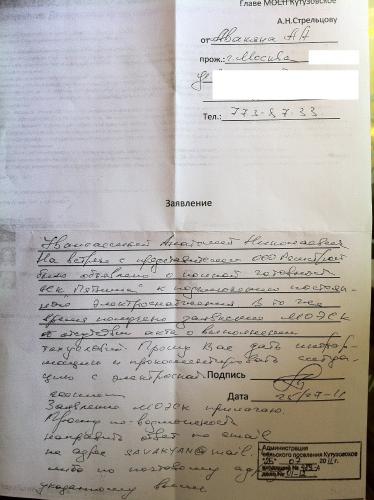 Главе МОСП Кутузовское
А.Н.Стрельцову
от Авакяна А А
прож.: г. Москва
Тел.: 773-87-33
Заявление
Уважаемый Анатолий Николаевич
На встрече с представителем ООО
было объявлено о полной готовности
к подключению
электроснабжения В то же
время получено заявление МОЭСК
об отсутствии акта о выполнении
техусловий Прошу Вас дать инфор-
мацию и прокомментировать ситуа-
цию с Подпись
Дата 25/07-11
Заявление МОЭСК прилагаю.
Прошу по возможности
направить ответ на email
на адрес SAVAKYAN@mail.
либо по почтовому адресу
указанному выше
Администрация
сельского поселения Кутузовское
"26" 07 2011 г.